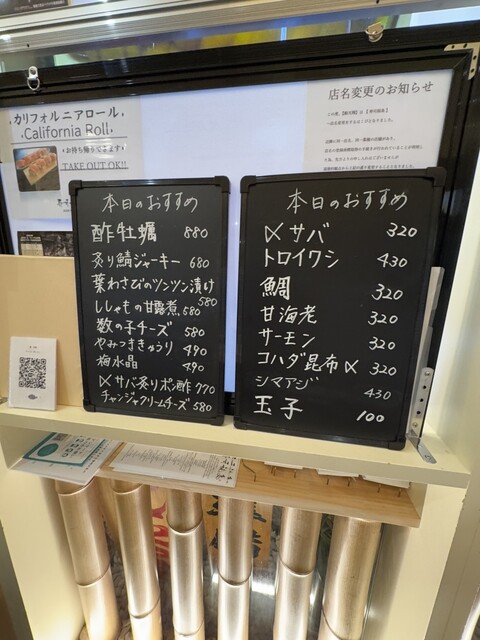 カリフォルニアロール
California Roll
お持ち帰りできます
TAKE OUT OK!!
店名変更のお知らせ
本日のおすすめ
酢牡蠣 880
炙り鯖ジャーキー 680
葉わさびのツンツン漬け 580
ししゃもの甘露煮 580
数の子チーズ 580
やみつききゅうり 490
梅水晶 490
〆サバ炙りポン酢 770
チャンジャクリームチーズ 580
本日のおすすめ
〆サバ 320
トロイワシ 430
鯛 320
甘海老 320
サーモン 320
コハダ昆布〆 320
シマアジ 430
玉子 100